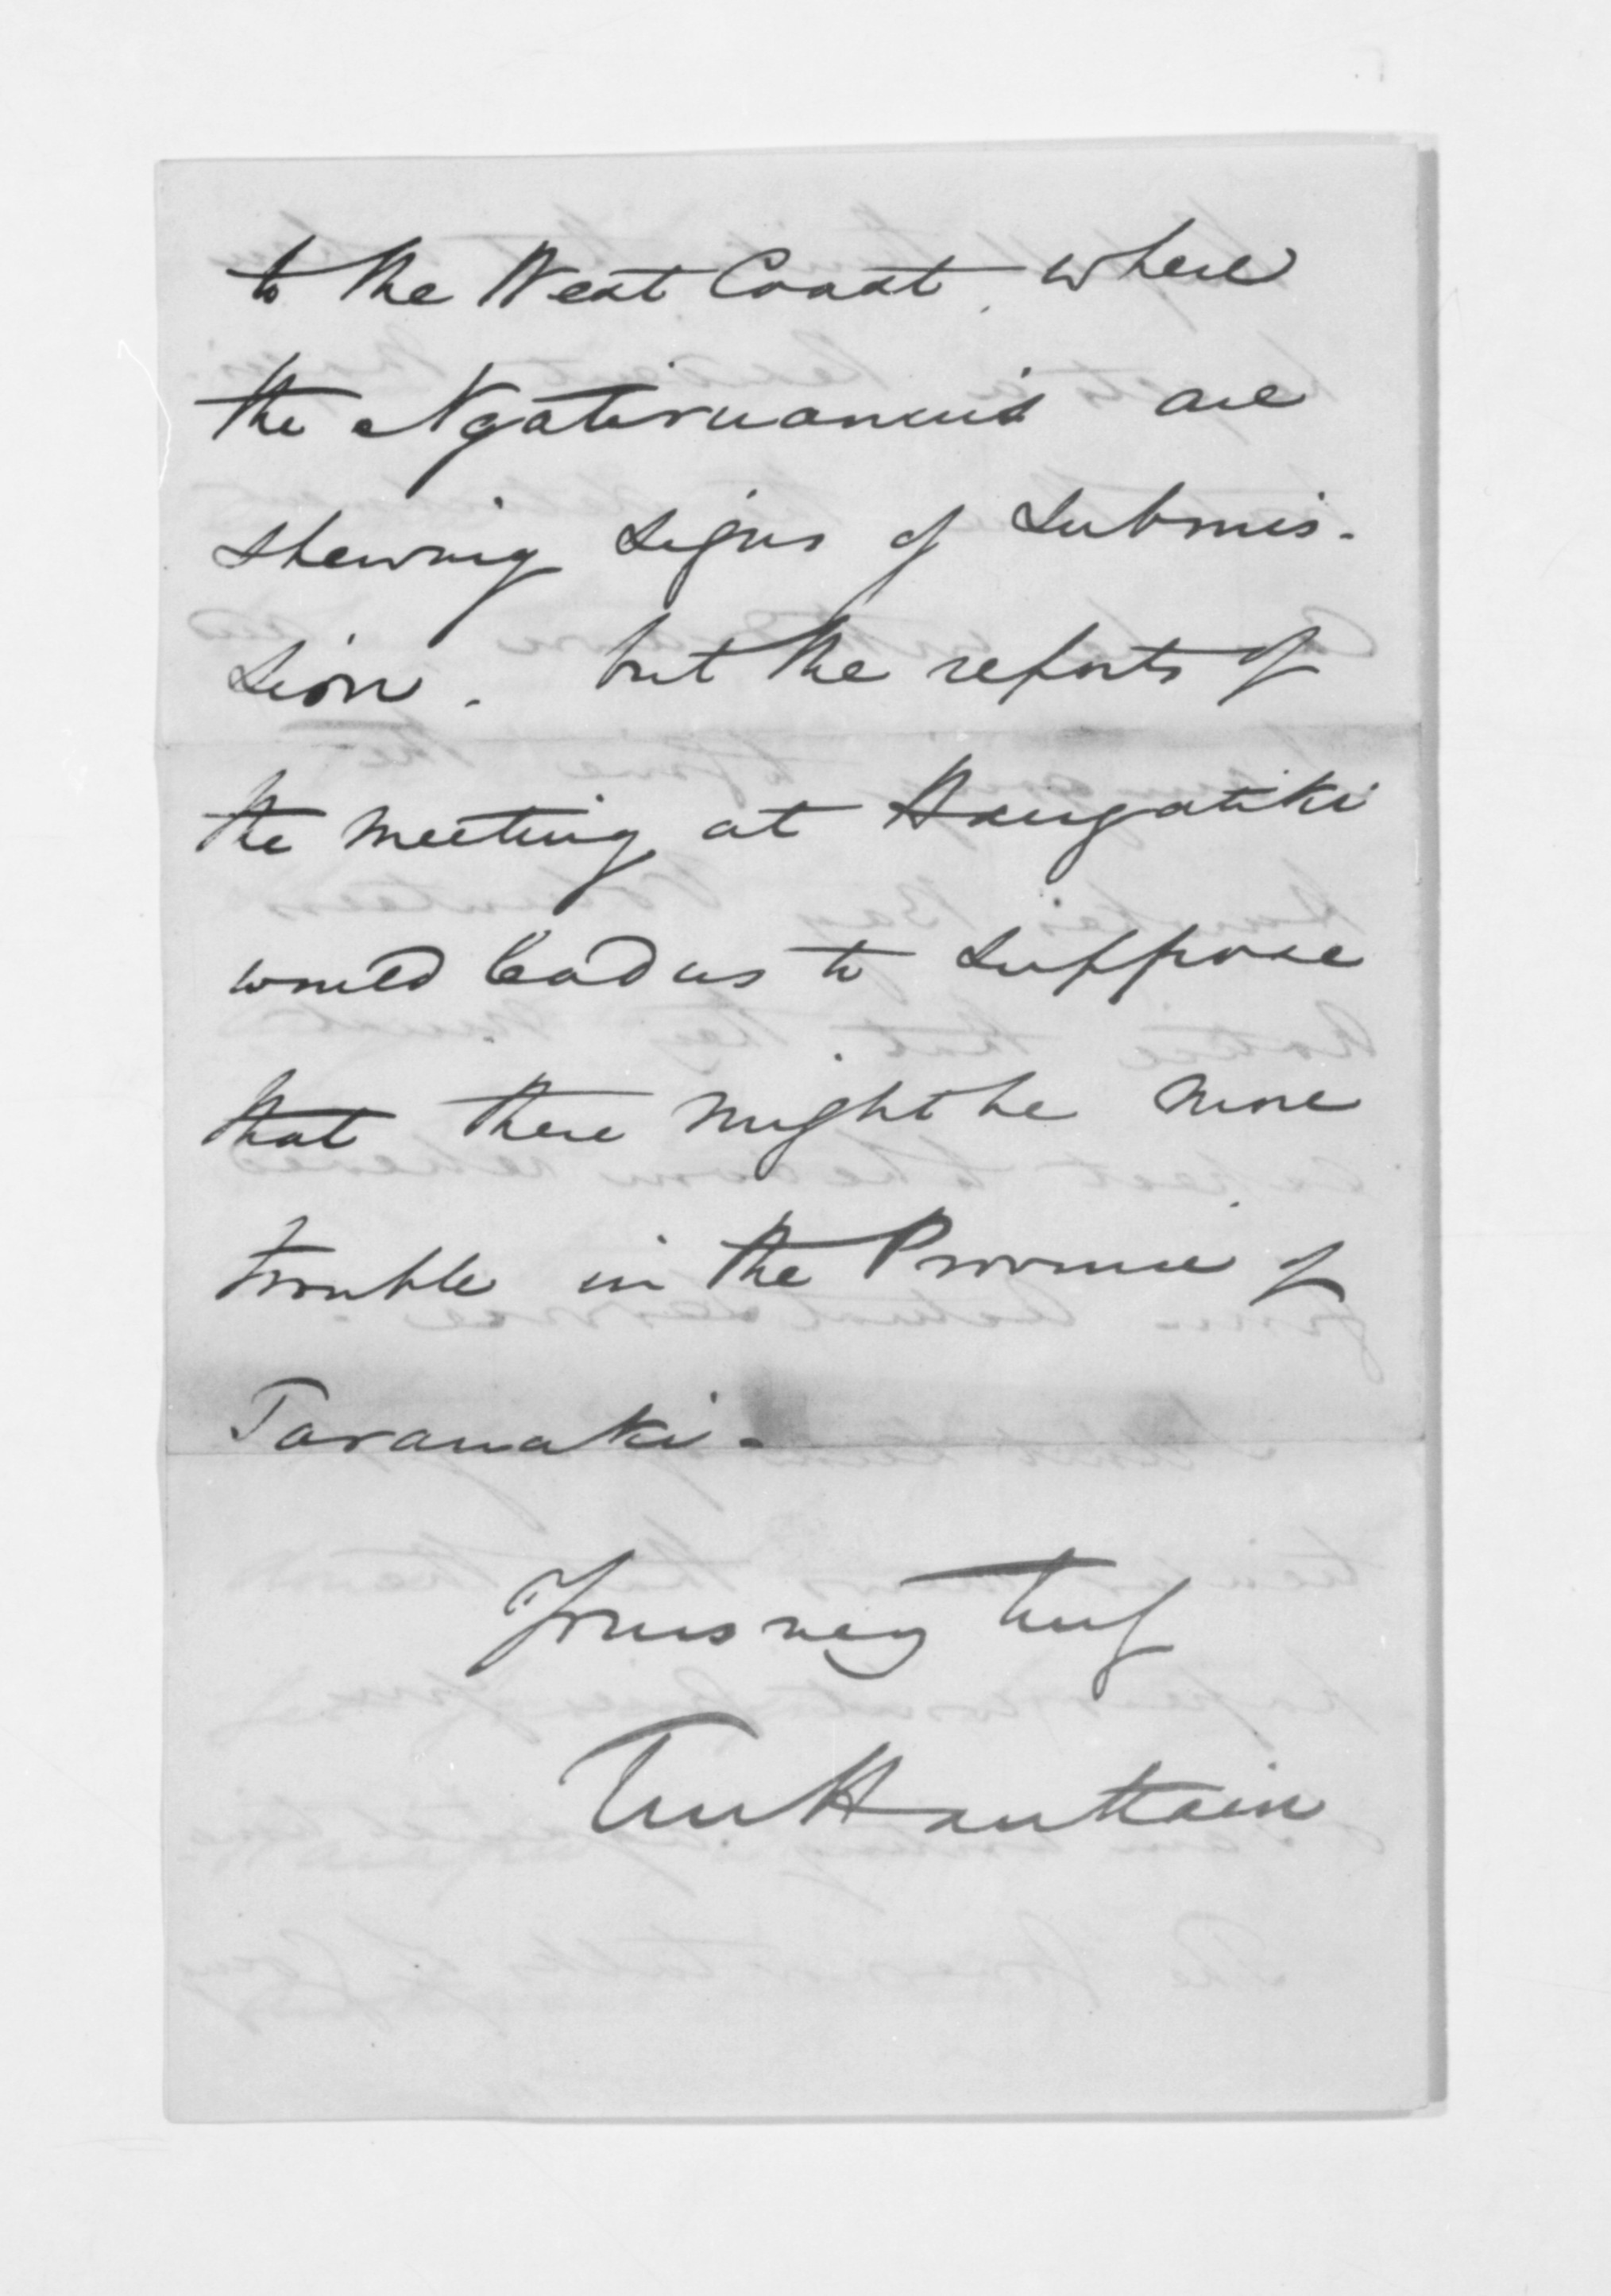 to the West Coast, where
the Ngatiruanuis are
shewing signs of submis-
sion. but the reports of
the meeting at Haugatiki
would lead us to suppose
that there might be more
trouble in the Province of
Taranaki.
Yours very truly
Haultain